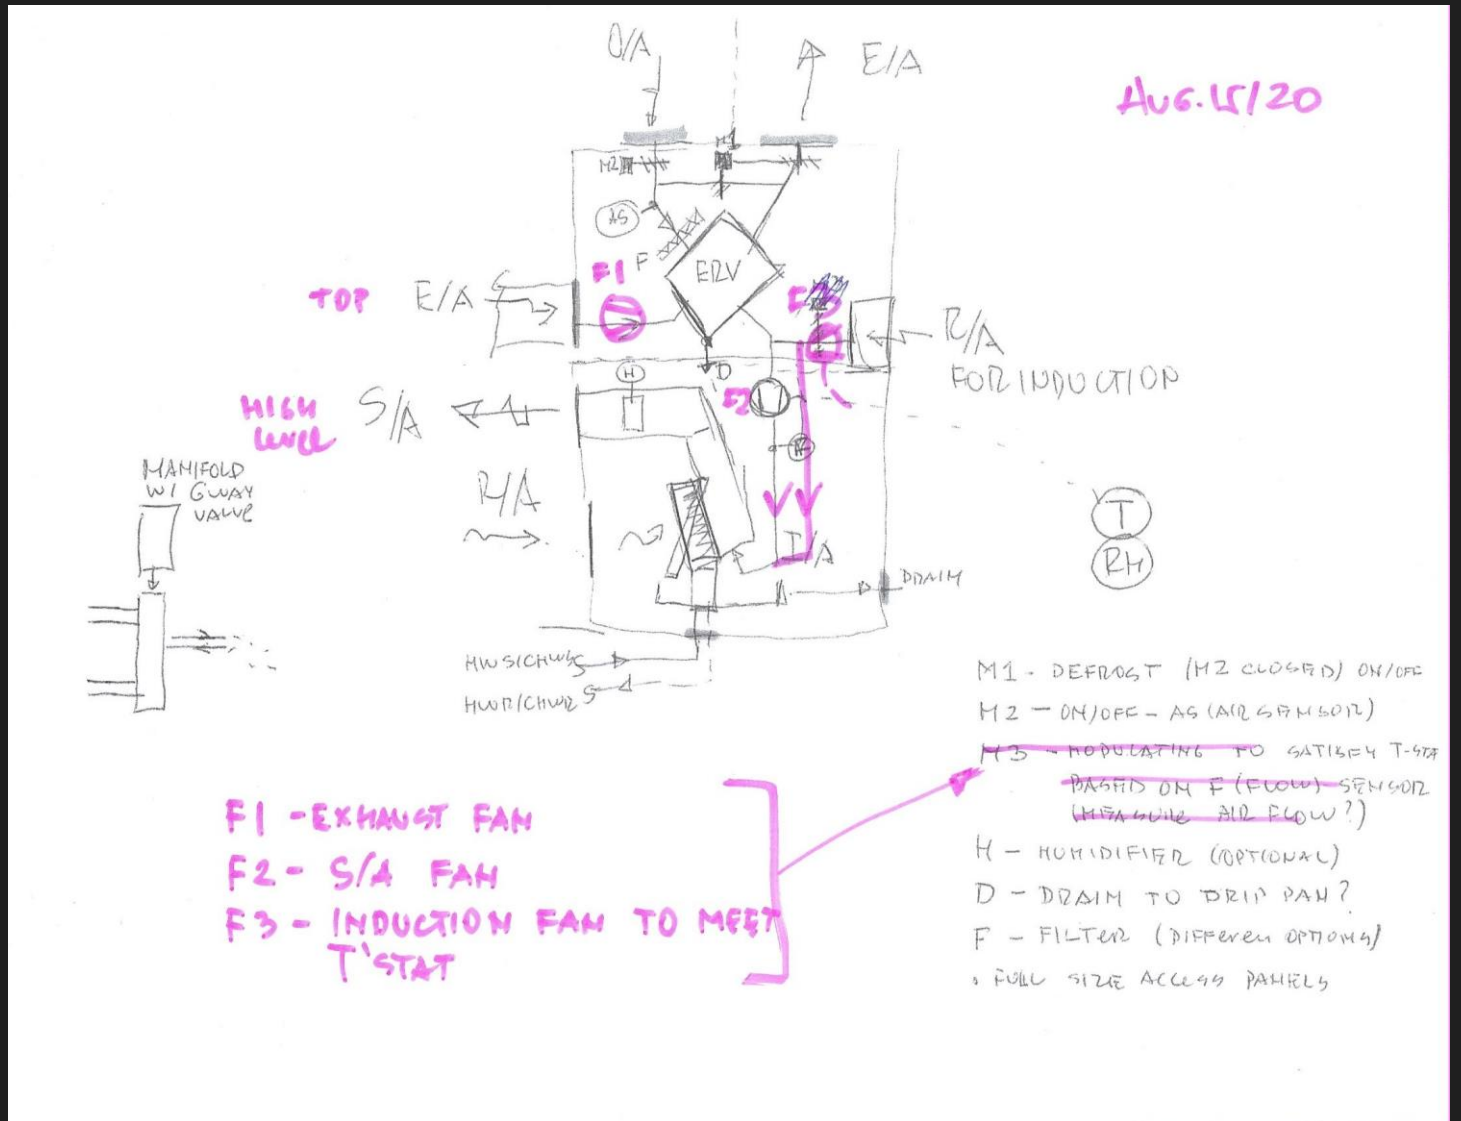 O/A
E/A
AUG.15/20
M2
M1
AS
F
ERV
F1
TOP
E/A
R/A
FOR INDUCTION
D
H
F2
HIGH
LEVEL
S/A
MANIFOLD
W/ 6WAY
VALVE
R/A
T
RH
I/A
DRAIN
HWS/CHWS
HWR/CHWR
M1 - DEFROST (M2 CLOSED) ON/OFF
M2 - ON/OFF - AS (AIR SENSOR)
M3 - MODULATING TO SATISFY T-STA
BASED ON F (FLOW) SENSOR
(MEASURE AIR FLOW?)
H - HUMIDIFIER (OPTIONAL)
D - DRAIN TO DRIP PAN?
F - FILTER (DIFFEREN OPTIONS)
. FULL SIZE ACCESS PANELS
F1 - EXHAUST FAN
F2 - S/A FAN
F3 - INDUCTION FAN TO MEET
T'STAT